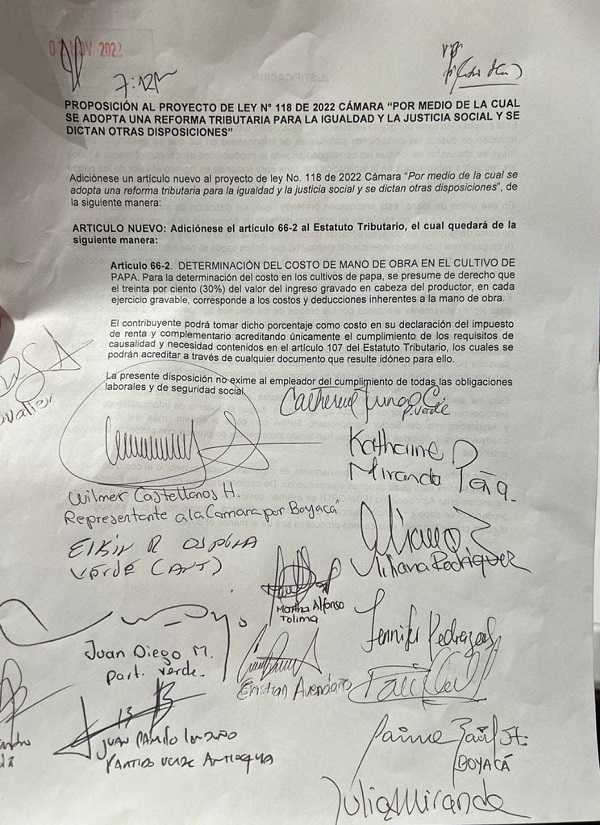 NOV 2022
7:12PM
PROPOSICIÓN AL PROYECTO DE LEY N° 118 DE 2022 CÁMARA "POR MEDIO DE LA CUAL
SE ADOPTA UNA REFORMA TRIBUTARIA PARA LA IGUALDAD Y LA JUSTICIA SOCIAL Y SE
DICTAN OTRAS DISPOSICIONES"
Adiciónese un artículo nuevo al proyecto de ley No. 118 de 2022 Cámara "Por medio de la cual se
adopta una reforma tributaria para la igualdad y la justicia social y se dictan otras disposiciones", de
la siguiente manera:
ARTICULO NUEVO: Adiciónese el artículo 66-2 al Estatuto Tributario, el cual quedará de la
siguiente manera:
Artículo 66-2. DETERMINACIÓN DEL COSTO DE MANO DE OBRA EN EL CULTIVO DE
PAPA. Para la determinación del costo en los cultivos de papa, se presume de derecho que
el treinta por ciento (30%) del valor del ingreso gravado en cabeza del productor, en cada
ejercicio gravable, corresponde a los costos y deducciones inherentes a la mano de obra.
El contribuyente podrá tomar dicho porcentaje como costo en su declaración del impuesto
de renta y complementario acreditando únicamente el cumplimiento de los requisitos de
causalidad y necesidad contenidos en el artículo 107 del Estatuto Tributario, los cuales se
podrán acreditar a través de cualquier documento que resulte idóneo para ello.
La presente disposición no exime al empleador del cumplimiento de todas las obligaciones
laborales y de seguridad social
Catherine Juvinao C.
P. Verde
Katherine
Miranda
Wilmer Castellanos H.
Representante a la Camara por Boyacá
Elkin R Ospina
Verde (Ant)
Olga
Martha Alfonso
Tolima
Jennifer Pedraza S
Juan Diego M.
part. verde.
Cristian Avendaño
Juan Camilo Londoño
Partido Verde Antioquia
Jaime Raúl
BOYACÁ
Julia Miranda